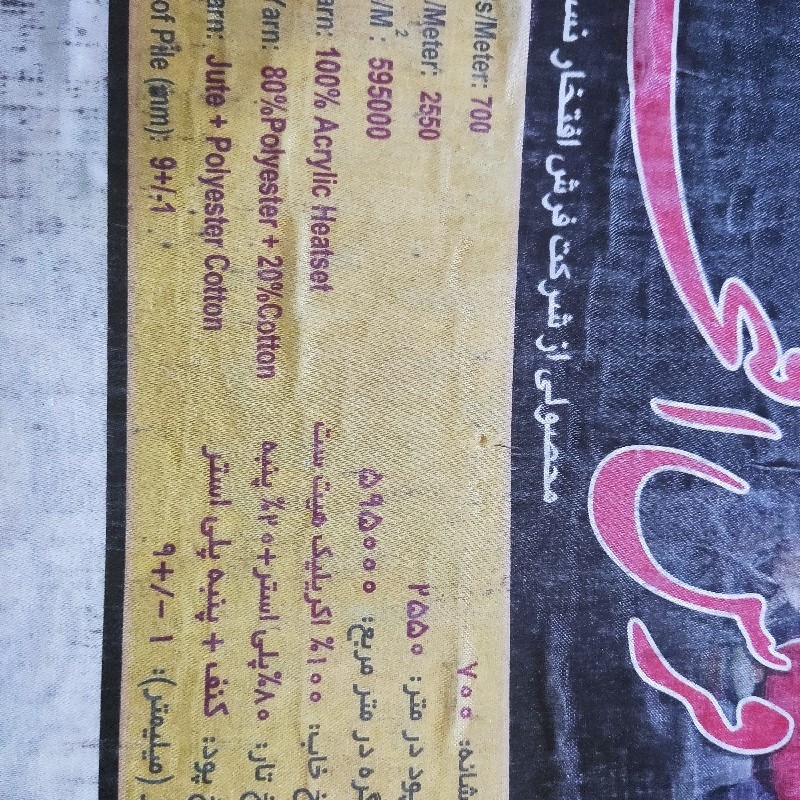 محصولی از شرکت فرش افتخار
s/Meter: 700
شانه: ۷۰۰
/Meter: 2550
پود در متر: ۲۵۵۰
/M²: 595000
گره در متر مربع: ۵۹۵۰۰۰
arn: 100% Acrylic Heatset
خ خاب: ۱۰۰% اکریلیک هیت ست
Yarn: 80%Polyester + 20%Cotton
خ تار: ۸۰%پلی استر+۲۰% پنبه
arn: Jute + Polyester Cotton
خ پود: کنف + پنبه پلی استر
of Pile (mm): 9+/-1
(میلیمتر): ۹+/-۱